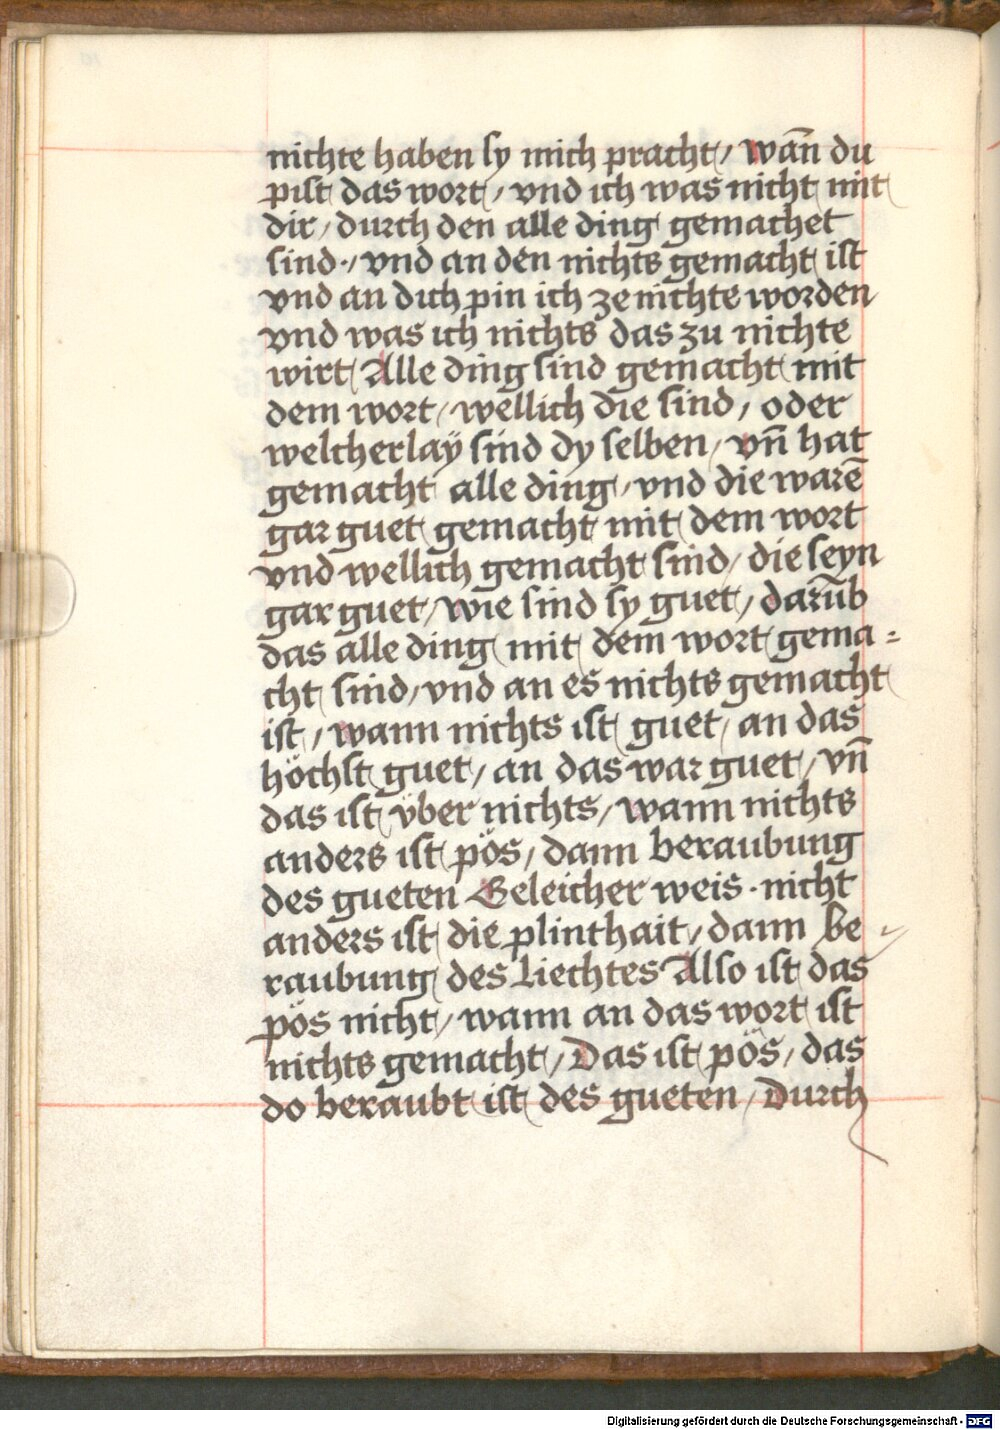 nichte haben sy mich pracht / wañ du
pist das wort / vnd ich was nicht mit
dir / durch den alle ding gemachet
sind · / vnd an den nichts gemacht ist
vnd an dich pin ich ze nichte worden
vnd was ich nichts das zu nichte
wirt Alle ding sind gemacht mit
dem wort / wellich die sind / oder
welcherlaÿ sind dy selben / vñ hat
gemacht alle ding / vnd die warē
gar guet gemacht mit dem wort
vnd wellich gemacht sind / die seyn
gar guet / wie sind sy guet / darūb
das alle ding mit dem wort gema =
cht sind / vnd an es nichts gemacht
ist / wann nichts ist guet / an das
höchst guet / an das war guet / vñ
das ist ÿber nichts / wann nichts
anders ist pös / dann beraubung
des gueten Geleicher weis · nicht
anders ist die plinthait / dann be //
raubung des Liechtes Also ist das
pös nicht / wann an das wort ist
nichts gemacht / Das ist pös / das
do beraubt ist des gueten / Durch
Digitalisierung gefördert durch die Deutsche Forschungsgemeinschaft - DFG